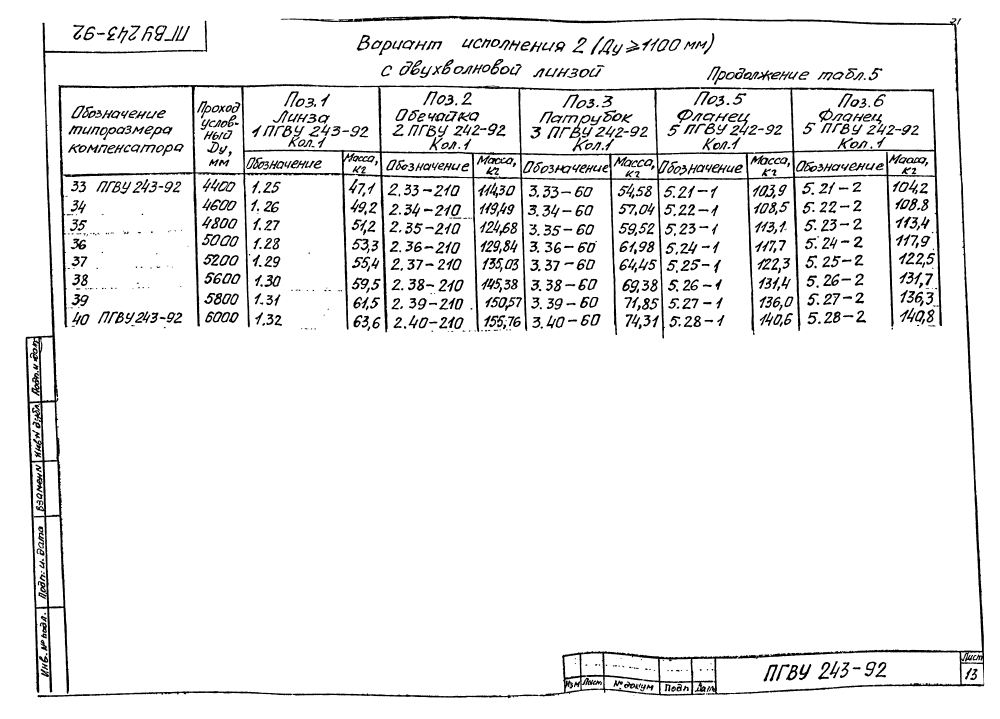 21
ПГВУ 243-92
Вариант исполнения 2 (Ду≥1100 мм)
с двухволновой линзой
Продолжение табл.5
Обозначение типоразмера компенсатора
Проход условный Ду, мм
Поз.1 Линза 1 ПГВУ 243-92 Кол.1
Поз.2 Обечайка 2 ПГВУ 242-92 Кол.1
Поз.3 Патрубок 3 ПГВУ 242-92 Кол.1
Поз.5 Фланец 5 ПГВУ 242-92 Кол.1
Поз.6 Фланец 5 ПГВУ 242-92 Кол.1
Обозначение Масса, кг Обозначение Масса, кг Обозначение Масса, кг Обозначение Масса, кг Обозначение Масса, кг
33 ПГВУ 243-92 4400 1.25 47,1 2.33-210 114,30 3.33-60 54,58 5.21-1 103,9 5.21-2 104,2
34 4600 1.26 49,2 2.34-210 119,49 3.34-60 57,04 5.22-1 108,5 5.22-2 108.8
35 4800 1.27 51,2 2.35-210 124,68 3.35-60 59,52 5.23-1 113,1 5.23-2 113,4
36 5000 1.28 53,3 2.36-210 129,84 3.36-60 61,98 5.24-1 117,7 5.24-2 117,9
37 5200 1.29 55,4 2.37-210 135,03 3.37-60 64,45 5.25-1 122,3 5.25-2 122,5
38 5600 1.30 59,5 2.38-210 145,38 3.38-60 69,38 5.26-1 131,4 5.26-2 131,7
39 5800 1.31 61,5 2.39-210 150,57 3.39-60 71,85 5.27-1 136,0 5.27-2 136,3
40 ПГВУ 243-92 6000 1.32 63,6 2.40-210 155,76 3.40-60 74,31 5.28-1 140,6 5.28-2 140,8
Подп. и дата
Инв. N дубл.
Взам.инв N
Подп. и. дата
Инв. № подл.
Изм Лист № докум Подп Дата
ПГВУ 243-92
Лист
13